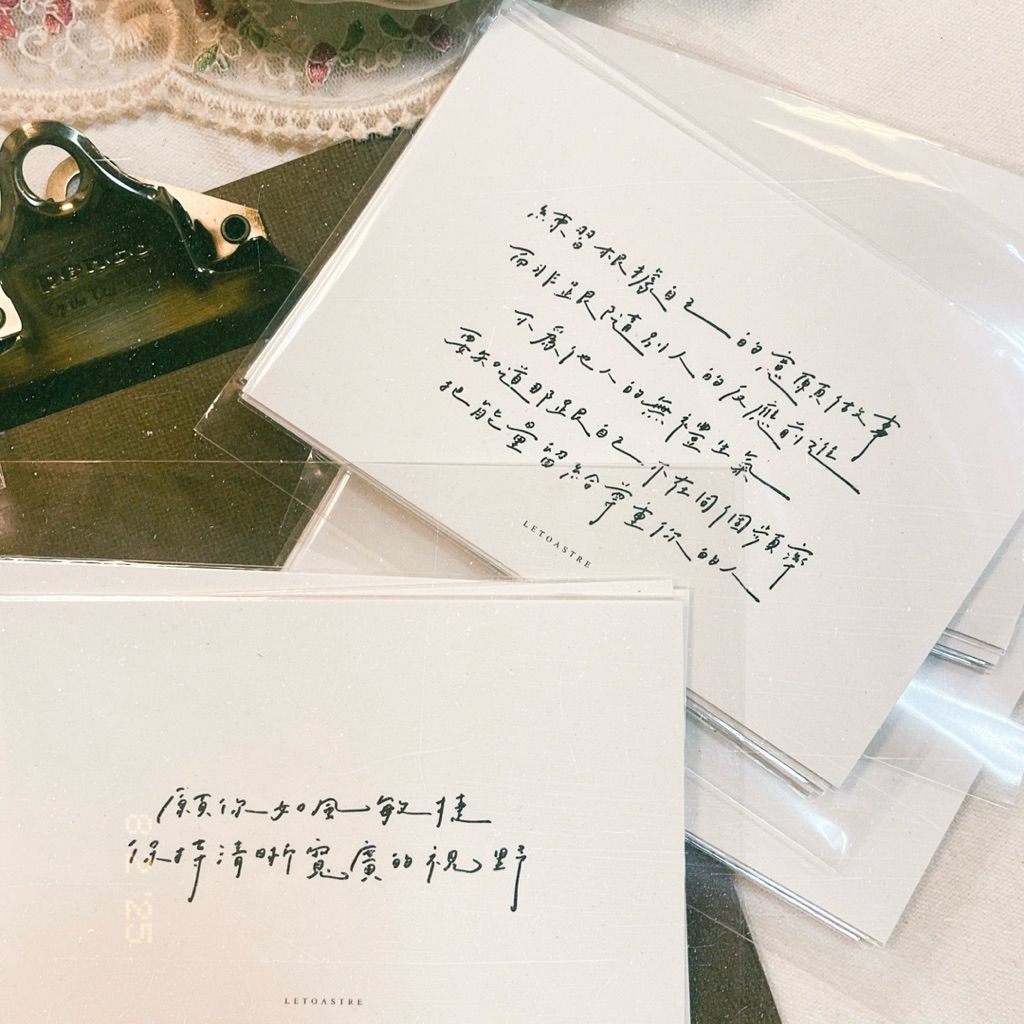 練習根據自己的意願做事
而非跟隨別人的反應前進
不為他人的無禮生氣
要知道那跟自己不在同個頻率
把能量留給尊重你的人
LETOASTRE
願你如風敏捷
保持清晰寬廣的視野
LETOASTRE